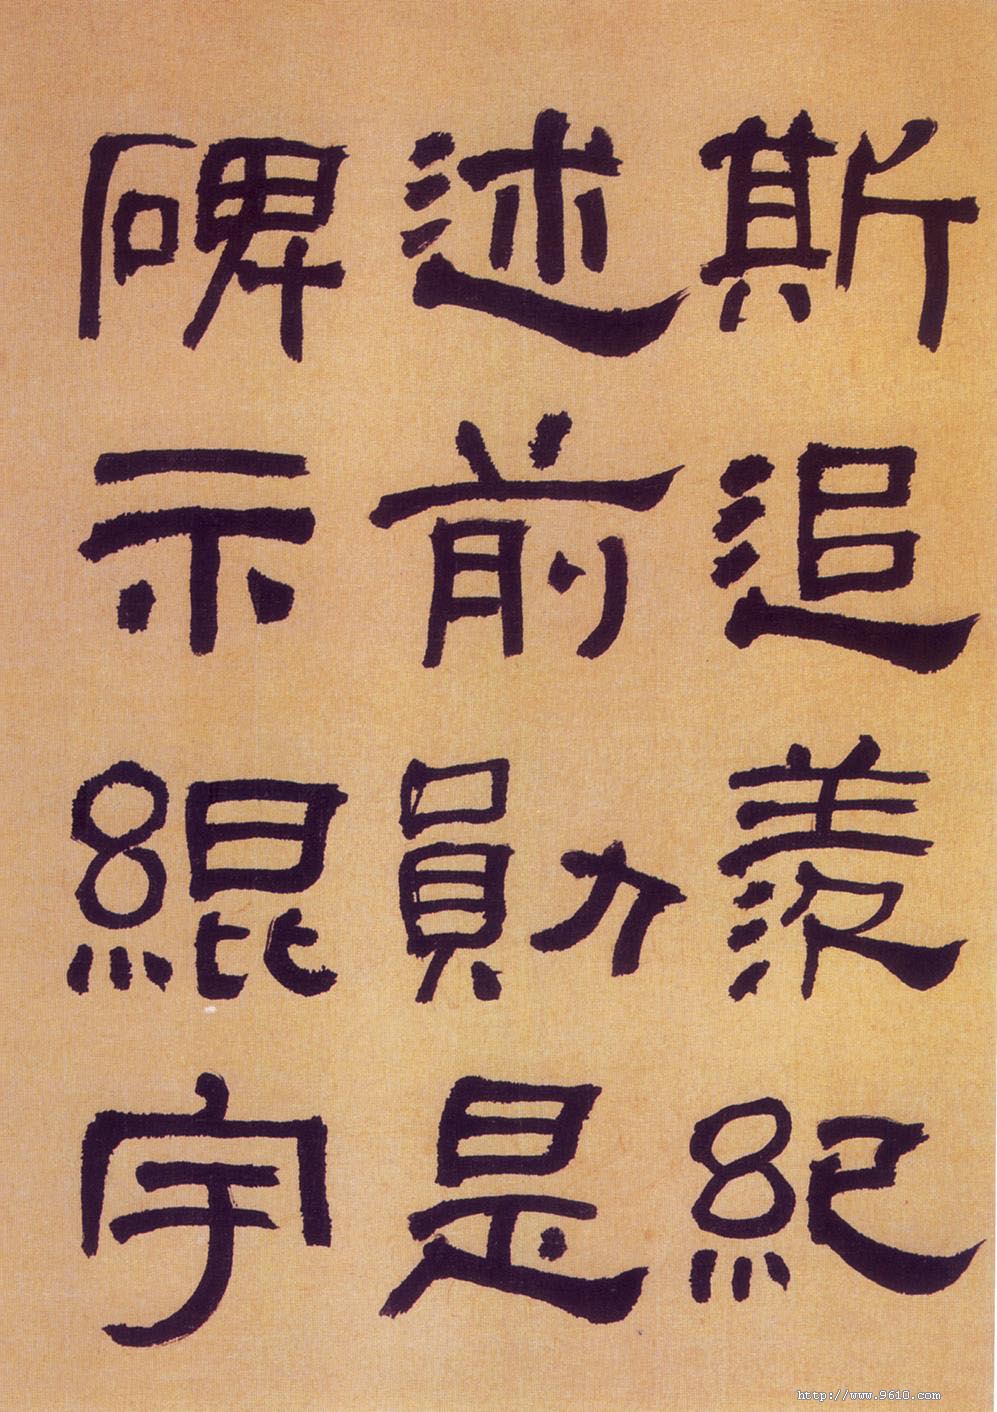 斯追羨紀
述前勛是
碑示緄宇
http://www.9610.com